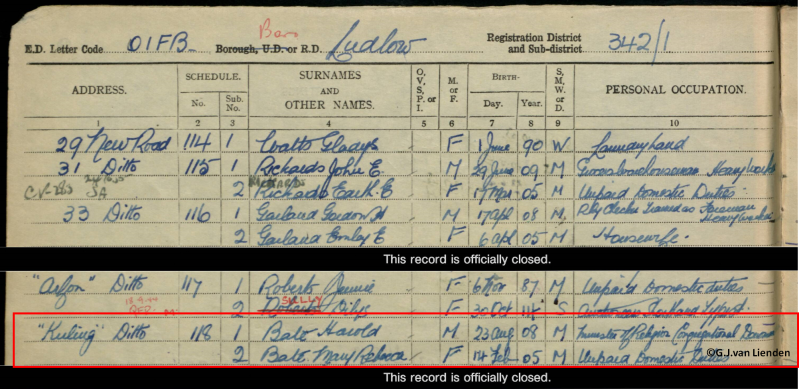 Bor
E.D. Letter Code OIFB Borough, U.D. or R.D. Ludlow Registration District and Sub-district 342/1
ADDRESS. SCHEDULE. No. Sub. No. SURNAMES AND OTHER NAMES. O, V, S, P, or I. M. or F. BIRTH- Day. Year. S, M, W, or D. PERSONAL OCCUPATION.
1 2 3 4 5 6 7 8 9 10
29 New Road 114 1 Watts Gladys F 1 June 90 W Laundry hand
31 Ditto 115 1 Richards John E. M 29 June 09 M Heavy Worker
2 Richards E. F 05 M Unpaid Domestic Duties
33 Ditto 116 1 Garland Gordon H M 17 Apl 08 M Rly Checker Trained as Heavy worker
2 Garland Emly E F 6 Apl 05 M Housewife.
This record is officially closed.
"Arfon" Ditto 117 1 Roberts Jennie F 6 Nov 87 M Unpaid Domestic duties
SKELLY
2 Roberts Dilys F 30 Oct 14 S Shorthand Typist.
"Kuling" Ditto 118 1 Bate Harold M 23 Aug 08 M Minister of Religion Congregational
2 Bate Mary Rebecca F 14 Feb 05 M Unpaid Domestic Duties
©G.J.van Lienden
This record is officially closed.